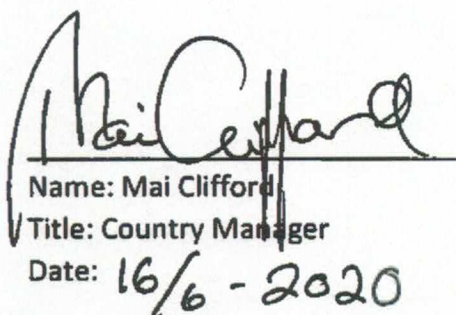 Mai Clifford
Name: Mai Clifford
Title: Country Manager
Date: 16/6 - 2020